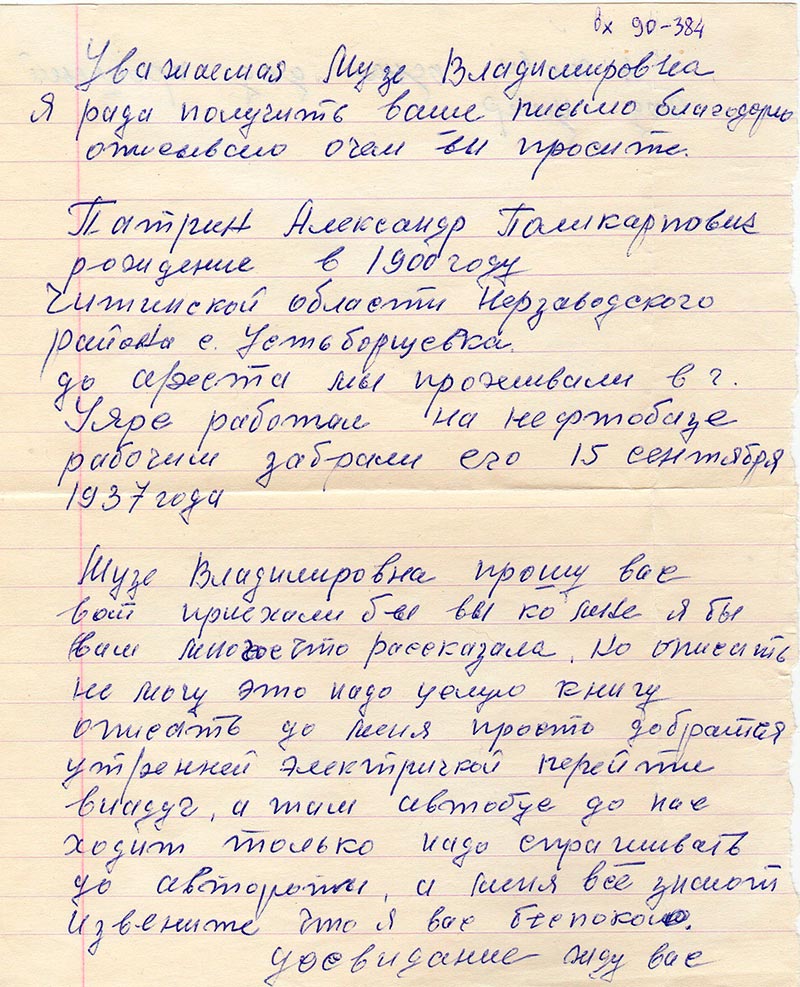 вх 90-384
Уважаемая Музе Владимировна
Я рада получить ваше письмо благодорю
описываю очем вы просите.
Патрин Александр Поликарпович
рождение в 1900 году
Читинской области Нерзаводского
района с. Устьборщевка.
до ареста мы проживали в г.
Уяре работал на нефтобазе
рабочим забрали его 15 сентября
1937 года
Музе Владимировна прошу вас
вот приехали бы вы ко мне я бы
вам многое что рассказала, но описать
не могу это надо целую книгу
описать до меня просто добратся
утренней электричкой перейти
виадуч, а там автобус до нас
ходит только надо спрашивать
до автороты, а меня всё знают
извените что я вас беспокою.
досвидание жду вас